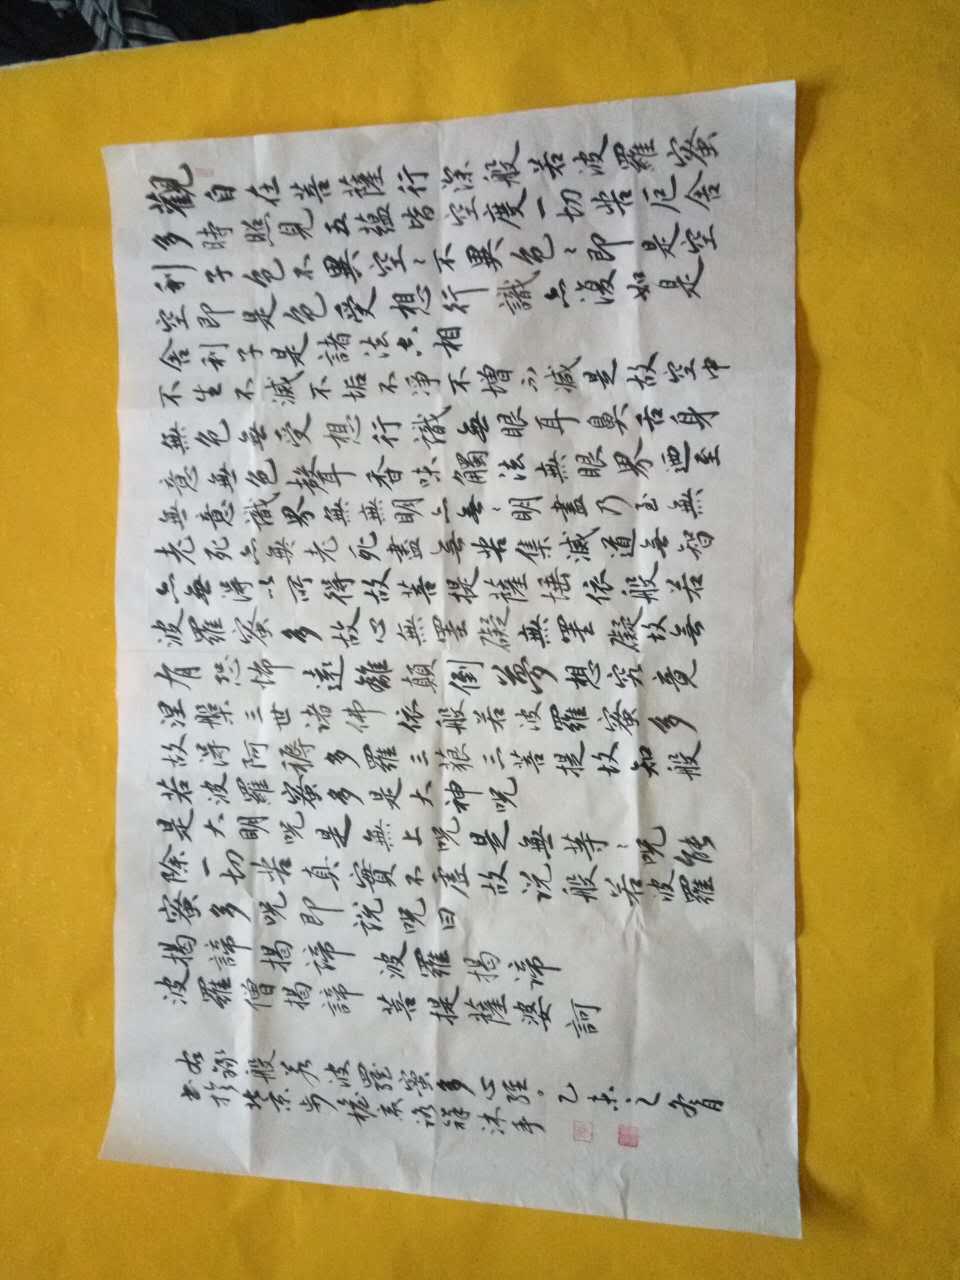 觀自在菩薩行深般若波羅蜜
多時照見五蘊皆空度一切苦厄舍
利子色不異空〻不異色〻即是空
空即是色受想行識亦復如是
舍利子是諸法空相
不生不滅不垢不淨不增不減是故空中
無色無受想行識無眼耳鼻舌身
意無色聲香味觸法無眼界迺至
無意識界無無明亦無〻明盡乃至無
老死亦無老死盡無苦集滅道無智
亦無得以所得故菩提薩埵依般若
波羅蜜多故心無罣礙無罣礙故無
有恐怖遠離顛倒夢想究竟
涅槃三世諸佛依般若波羅蜜多
故得阿耨多羅三藐三菩提故知般
若波羅蜜多是大神咒
是大明咒是無上咒是無等〻咒能
除一切苦真實不虛故說般若波羅
蜜多咒即說咒曰
揭諦揭諦波羅揭諦
波羅僧揭諦菩提薩婆訶
右錄般若波羅蜜多心經乙未之冬月
書於北京沐手